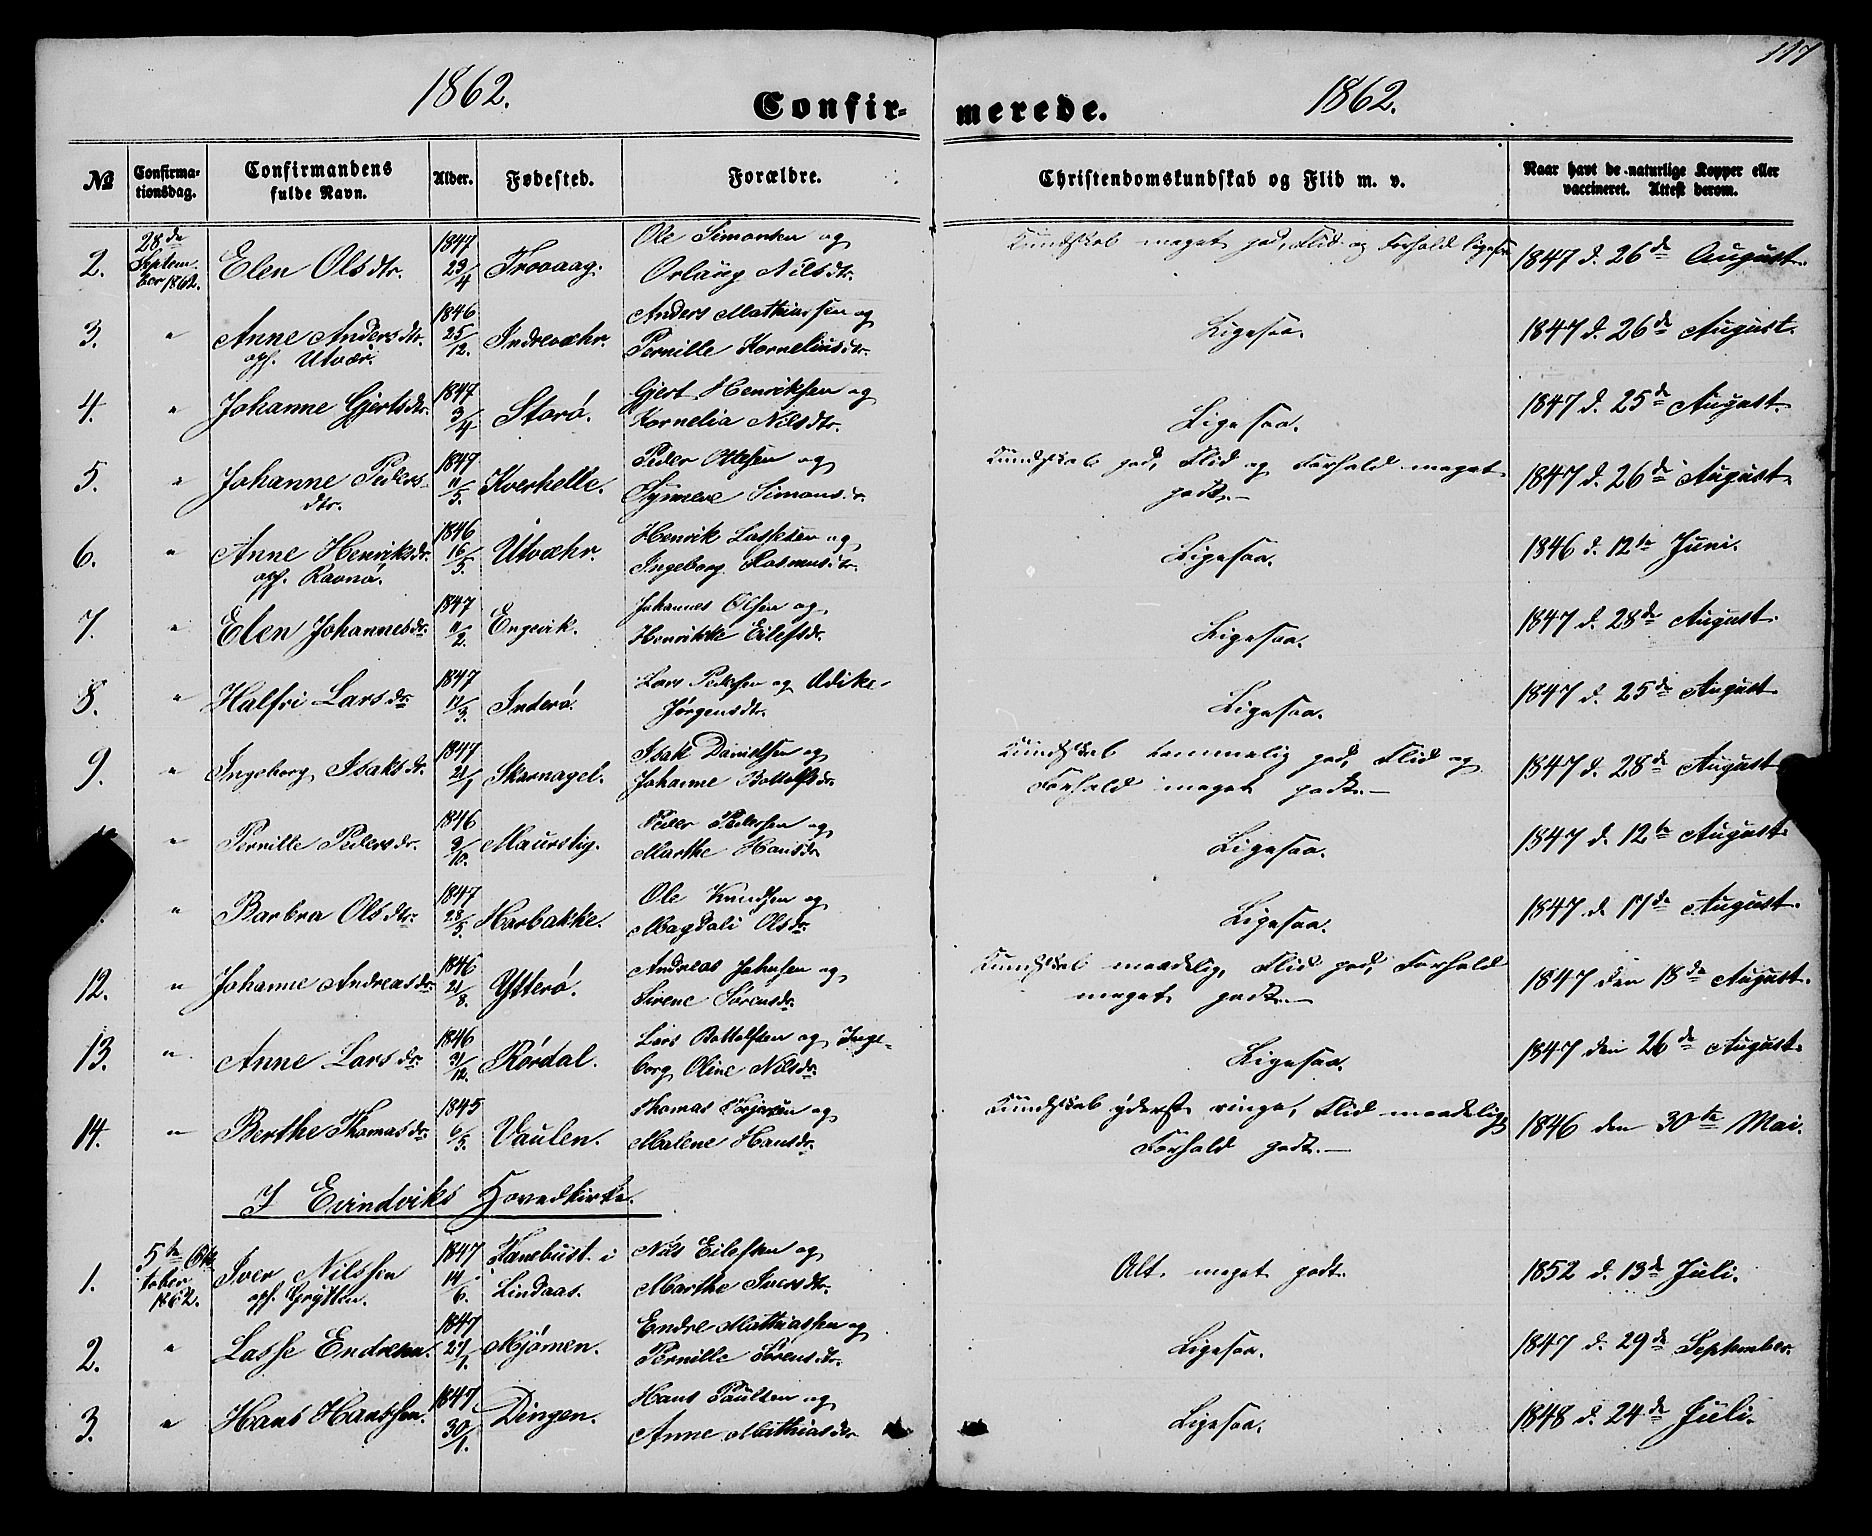 117
1862.
Confir-
merede.
1862.
№
Confirma-
tionsdag.
Confirmandens
fulde Navn.
Alder.
Fødested.
Forældre.
Christendomskundskab og Flid m. v.
Naar havt de naturlige Kopper eller
vaccineret. Attest derom.
2. 28de Septem-
ber 1862. Elen Olsdtr. 1847 29/4 Trovaag. Ole Simonsen og
Nilsdtr. Kundskab meget god, Flid og Forhold ligesaa 1847 d. 26de August.
3. " Anne Andersdtr.
opf. Utvær. 1846 25/12. Indrevæhr. Anders Mathiassen og
Pernille Korneliusdtr. Ligesaa. 1847 d. 26de August.
4. " Johanne Gjertsdtr. 1847 3/4 Storø. Gjert Henriksen og
Kornelia Nilsdtr. Ligesaa. 1847 d. 25de August.
5. " Johanne Peders-
dtr. 1847 11/5. Kverhelle. Peder Ottesen og
Synneve Simonsdr. Kundskab god, Flid og Forhold meget
godt.— 1847 d. 26de August.
6. " Anne Henriksdr.
opf. Ravnø. 1846 16/5. Utvæhr. Henrik Lassesen og
Ingeborg Rasmusdtr. Ligesaa. 1846 d. 12te Juni.
7. " Elen Johannesdr. 1847 11/2. Engevik. Johannes Olsen og
Henrikke Eilefsdr. Ligesaa. 1847 d. 28de August.
8. " Halfri Larsdr. 1847 11/3. Inderø. Lars Pedersen og
Jørgensdtr. Ligesaa. 1847 d. 25de August
9. " Ingeborg Isaksdr. 1847 21/1 Skarnagel. Isak Danielsen og
Johanne Bottolfsdr. Kundskab temmelig god, Flid og
Forhold meget godt.— 1847 d. 28de August
" Pernille Pedersdr. 1846 9/10. Maurstig. Peder Pedersen og
Marthe Hansdr. Ligesaa. 1847 d. 12te August.
" Barbra Olsdtr. 1847 28/5. Harbakke. Ole Knudsen og
Magdali Olsdr. Ligesaa. 1847 d 17de August.
12. " Johanne Andreasdr. 1846 21/8. Ytterø. Andreas Johnsen og
Sirene Sørensdr. Kundskab maadelig, Flid god, Forhold
meget godt.— 1847 den 18de August.
13. " Anne Larsdr. 1846 31/12. Rørdal. Lars Bottolfsen og Inge-
borg Oline Nilsdr. Ligesaa. 1847 den 26de August.
14. " Berthe Thomasdr. 1845 6/5. Vaulen. Thomas og
Malene Hansdr. Kundskab yderst ringe, Flid maadelig,
Forhold godt.— 1846 den 30te Mai.
I Evindviks Hovedkirke.
1. 5te Ok-
tober
1862. Iver Nilssen
opf. Grytten. 1847 14/6. Fanebust i
Lindaas. Nils Eilefsen og
Marthe Iversdtr. Alt meget godt. 1852 d. 13de Juli.
2. " Lasse Endresen. 1847 27/1. Mjømen. Endre Mathiassen og
Pernille Sørensdtr. Ligesaa. 1847 d. 29de September.
3. " Hans Hanssen. 1847 30/1. Dingen. Hans Paulsen og
Anne Mathiasdr Ligesaa. 1848 d. 24de Juli.